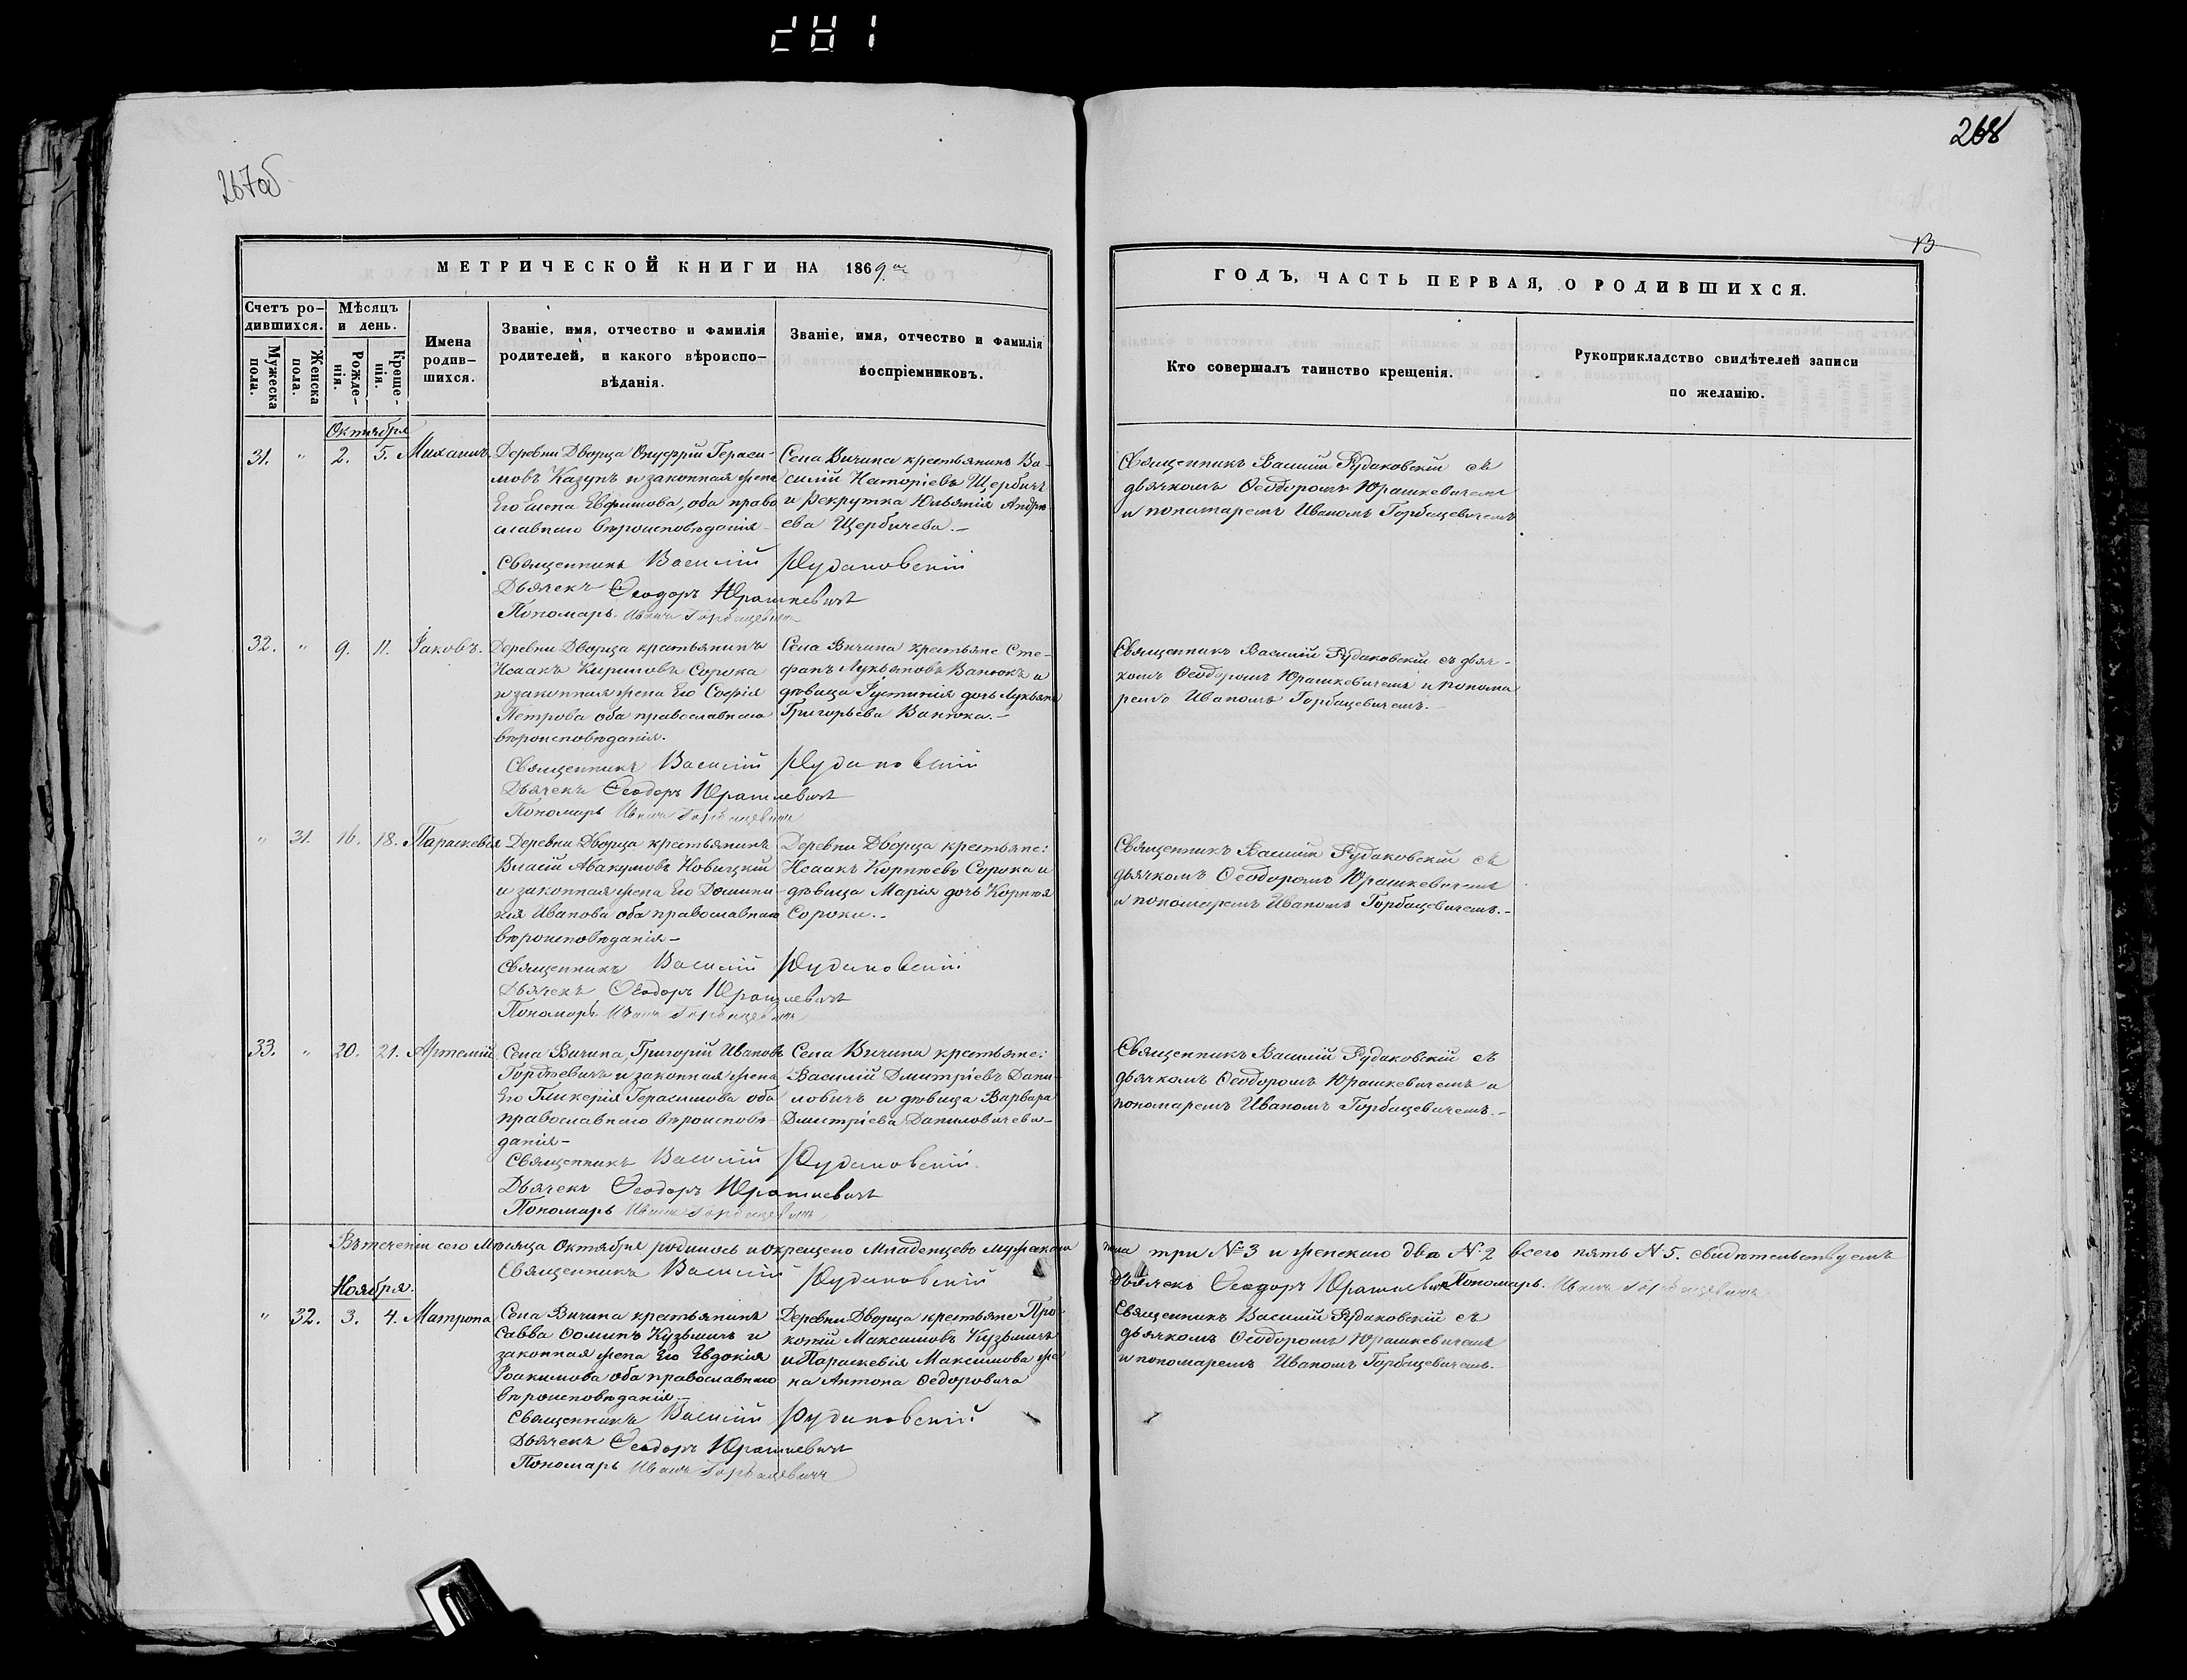 267об
268
13
МЕТРИЧЕСКОЙ КНИГИ НА 1869 го
ГОДЪ, ЧАСТЬ ПЕРВАЯ, О РОДИВШИХСЯ.
Счетъ ро-
дившихся.
Мужеска пола.
Женска пола.
Мѣсяцъ
и день.
Рожде-
нія.
Креще-
нія.
Имена
родив-
шихся.
Званіе, имя, отчество и фамилія
родителей, и какого вѣроиспо-
вѣданія.
Званіе, имя, отчество и фамилія
воспріемниковъ.
Кто совершалъ таинство крещенія.
Рукоприкладство свидѣтелей записи
по желанію.
Октября
31. " 2. 5. Михаилъ.
Деревни Дворца Онуфрій Гераси-
мовъ Казунъ и законная жена
Его Елена Евфимова, оба право
славнаго вѣроисповѣданія
Села Вичина крестьянинъ Ва-
силій Щербичъ
и рекрутка Юліянія Андре
ева Щербичева.-
Священникъ Василій Рудаковскій съ
дьячкомъ Ѳеодоромъ Юрашкевичемъ
и пономаремъ Иваномъ Горбацевичемъ
Священникъ Василій Рудаковскій
Дьячекъ Ѳеодоръ Юрашкевичъ
Пономарь Иванъ Горбацевичъ
32. " 9. 11. Іаковъ.
Деревни Дворца крестьянинъ
Исаакъ Кириловъ Сорока
и законная жена Его Софія
Петрова оба православнаго
вѣроисповѣданія.
Села Вичина крестьяне Сте-
фанъ Лукьяновъ Ванюкъ и
дѣвица Іустинія дочь Лукьяна
Григорьева Ванюка.-
Священникъ Василій Рудаковскій съ дьяч-
комъ Ѳеодоромъ Юрашкевичемъ и понома
ремъ Иваномъ Горбацевичемъ.-
Священникъ Василій Рудаковскій
Дьячекъ Ѳеодоръ Юрашкевичъ
Пономарь Иванъ Горбацевичъ
" 31. 16. 18. Параскевія
Деревни Дворца крестьянинъ
Власій Авакумовъ Новицкій
и законная жена Его Домини-
кія Иванова оба православнаго
вѣроисповѣданія-
Деревни Дворца крестьяне:
Исаакъ Корнѣевъ Сорока и
дѣвица Марія дочь Корнѣя
Сороки.-
Священникъ Василій Рудаковскій съ
дьячкомъ Ѳеодоромъ Юрашкевичемъ
и пономаремъ Иваномъ Горбацевичемъ.-
Священникъ Василій Рудаковскій
Дьячекъ Ѳеодоръ Юрашкевичъ
Пономарь Иванъ Горбацевичъ
33. " 20. 21. Артемій
Села Вичина, Григорій Ивановъ
Гордѣевичъ и законная жена
Его Гликерія Герасимова оба
православнаго вѣроисповѣ-
данія-
Села Вичина крестьяне:
Василій Дмитріевъ Дани-
ловичъ и дѣвица Варвара
Дмитріева Даниловичева-
Священникъ Василій Рудаковскій съ
дьячкомъ Ѳеодоромъ Юрашкевичемъ и
пономаремъ Иваномъ Горбацевичемъ.-
Священникъ Василій Рудаковскій.
Дьячекъ Ѳеодоръ Юрашкевичъ
Пономарь Иванъ Горбацевичъ
Въ теченіи сего Мѣсяца Октября родилось и окрещено Младенцевъ мужескаго пола три №3 и женскаго два №2 всего пять №5. свидѣтельствуемъ
Священникъ Василій Рудаковскій Дьячекъ Ѳеодоръ Юрашкевичъ Пономарь Иванъ Горбацевичъ
Ноября.
" 32. 3. 4. Матрона
Села Вичина крестьянинъ
Савва Ѳоминъ Кузьмичъ и
законная жена Его Евдокія
Іоакимова оба православнаго
вѣроисповѣданія.-
Деревни Дворца крестьяне Про-
копій Максимовъ Кузьмичъ
и Параскевія Максимова же
на Антона Ѳедоровича
Священникъ Василій Рудаковскій съ
дьячкомъ Ѳеодоромъ Юрашкевичемъ
и пономаремъ Иваномъ Горбацевичемъ.-
Священникъ Василій Рудаковскій
Дьячекъ Ѳеодоръ Юрашкевичъ
Пономарь Иванъ Горбацевичъ